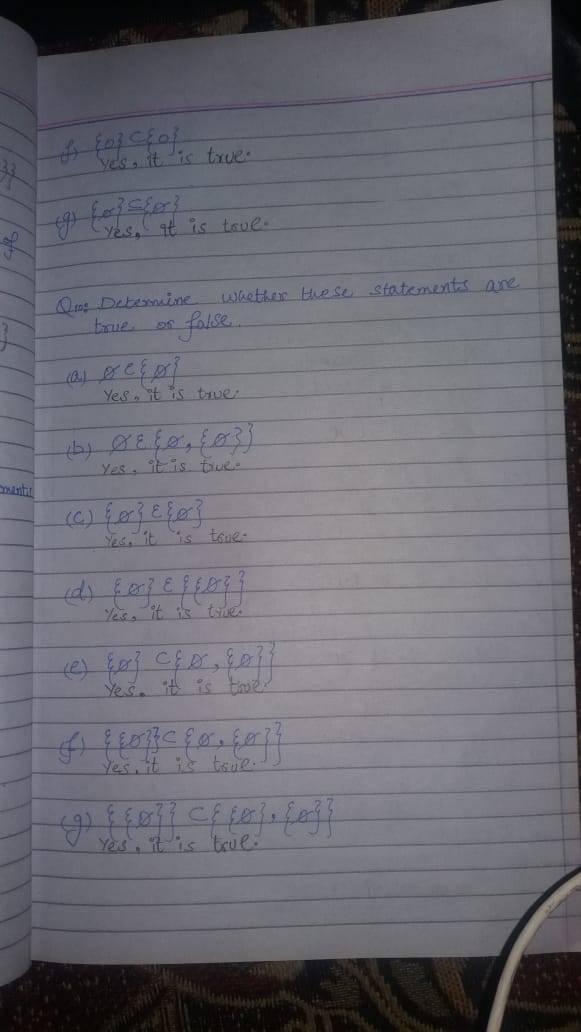 f) {0} ⊂ {0}
Yes, it is true.
(g) {ø} ⊆ {ø}
Yes, it is true.
Q10: Determine whether these statements are
true or false.
(a) ø ∈ {ø}
Yes, it is true.
(b) ø ∈ {ø, {ø}}
Yes, it is true.
(c) {ø} ∈ {ø}
Yes, it is true.
(d) {ø} ∈ {{ø}}
Yes, it is true.
(e) {ø} ⊂ {ø, {ø}}
Yes. it is true.
f) {{ø}} ⊂ {ø, {ø}}
Yes, it is true.
(g) {{ø}} ⊂ {{ø}, {ø}}
Yes, it is true.